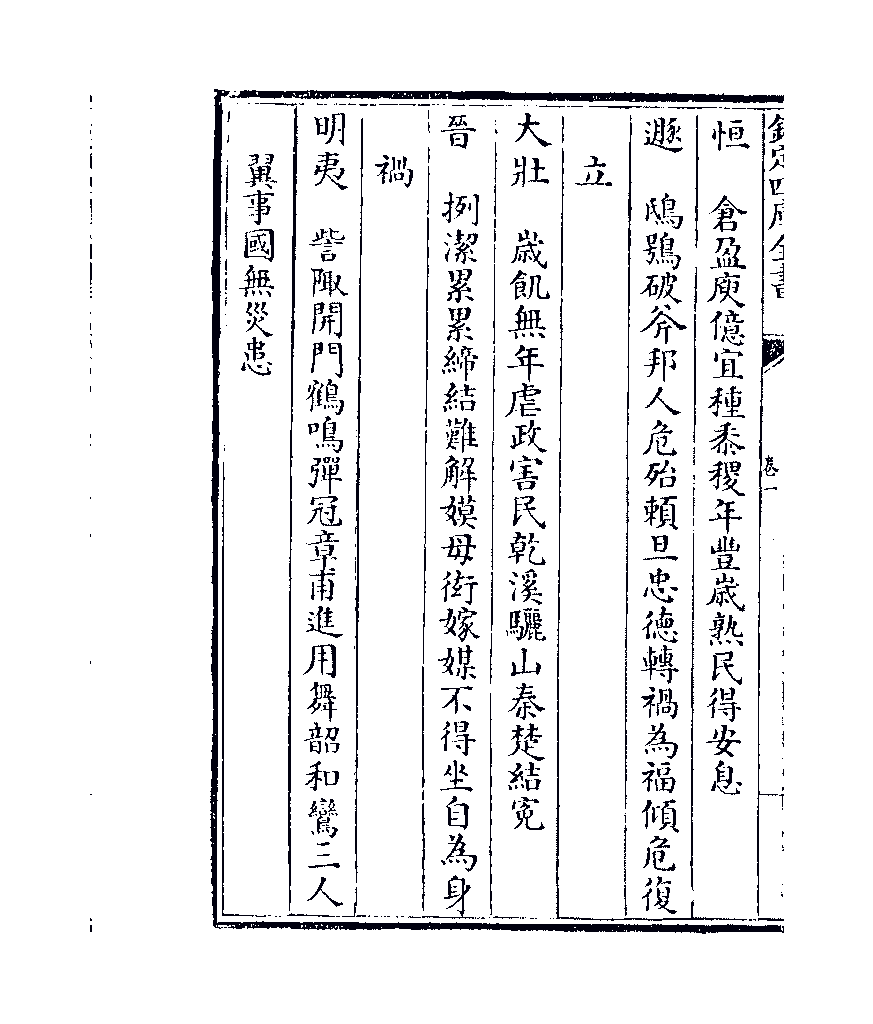 欽定四庫全書
卷一
恒　倉盈庾億宜種黍稷年豐歳熟民得安息
遯　鴟鴞破斧邦人危殆賴旦忠徳轉禍為福傾危復
立
大壯　歳飢無年虐政害民乾溪驪山秦楚結寃
晉　挒潔累累締結難解嫫母衒嫁媒不得坐自為身
禍
明夷　訾陬開門鶴鳴彈冠章甫進用舞韶和鸞三人
翼事國無災患